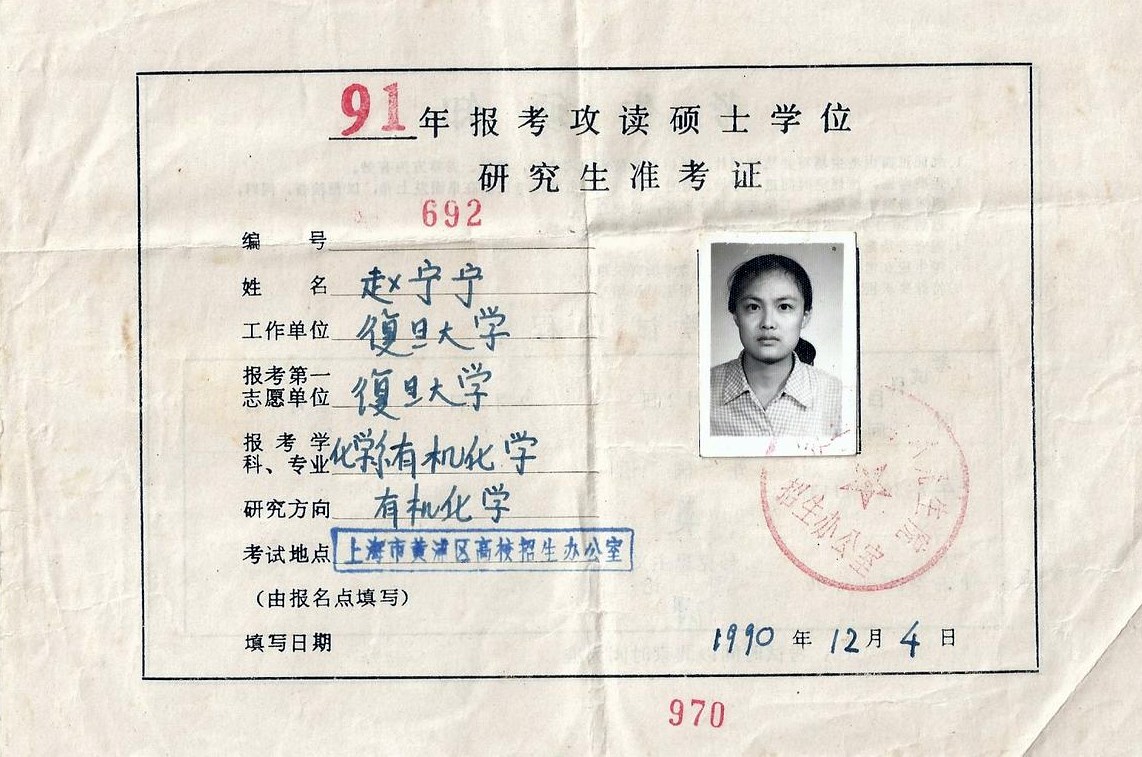 91年报考攻读硕士学位
研究生准考证
692
编 号
姓 名 赵宁宁
工作单位 復旦大学
报考第一
志愿单位 復旦大学
报考学
科、专业 化学系有机化学
研究方向 有机化学
考试地点 上海市黄浦区高校招生办公室
（由报名点填写）
招生办公室
填写日期 1990年12月4日
970